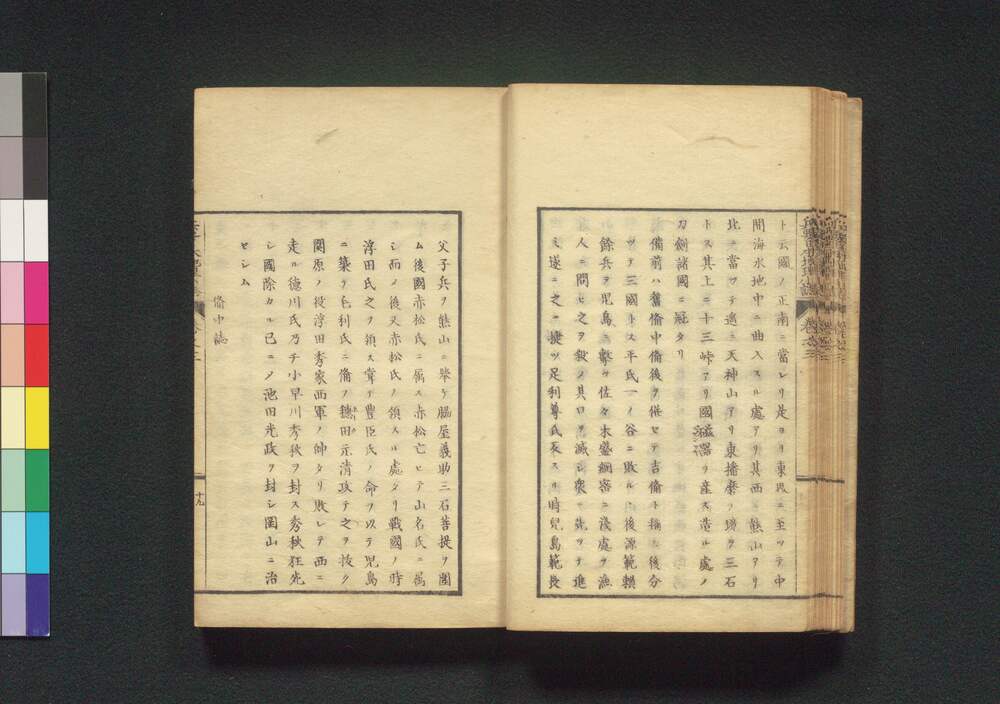 ト云國ノ正南ニ當レリ是ヨリ東界ニ至ツテ中
間海水地中ニ曲入スル處アリ其西ニ熊山アリ
北ニ當ツテ遙ニ天神山アリ東播磨ノ境ヲ三石
トス其上ニ十三峠アリ國磁器ヲ産ス造ル處ノ
刀劍諸國ニ冠タリ
備前ハ舊備中備後ヲ併セテ吉備ト稱ス後分
ツテ三國トス平氏一ノ谷ニ敗ルヽ後源範頼
餘兵ヲ児島ニ撃ツ佐々木盛綱密ニ淺處ヲ漁
人ニ問ヒ之ヲ殺シ其口ヲ滅シ衆ニ先ツテ進
ミ遂ニ之ニ捷ツ足利尊氏反スル時兒島範長
父子兵ヲ熊山ニ擧ケ脇屋義助三石菩提ヲ圍
ム後國赤松氏ニ属ス赤松亡ヒテ山名氏ニ属
シ而ノ後又赤松氏ノ領スル處タリ戰國ノ時
浮田氏之ヲ領ス嘗テ豊臣氏ノ命ヲ以テ児島
ニ築キ毛利氏ニ備フ穗田元清攻テ之ヲ抜ク
関原ノ役浮田秀家西軍ノ帥タリ敗レテ西ニ
走ル徳川氏乃チ小早川秀秋ヲ封ス秀秋狂死
シ國除カル已ニノ池田光政ヲ封シ岡山ニ治
セシム
備中誌
十九